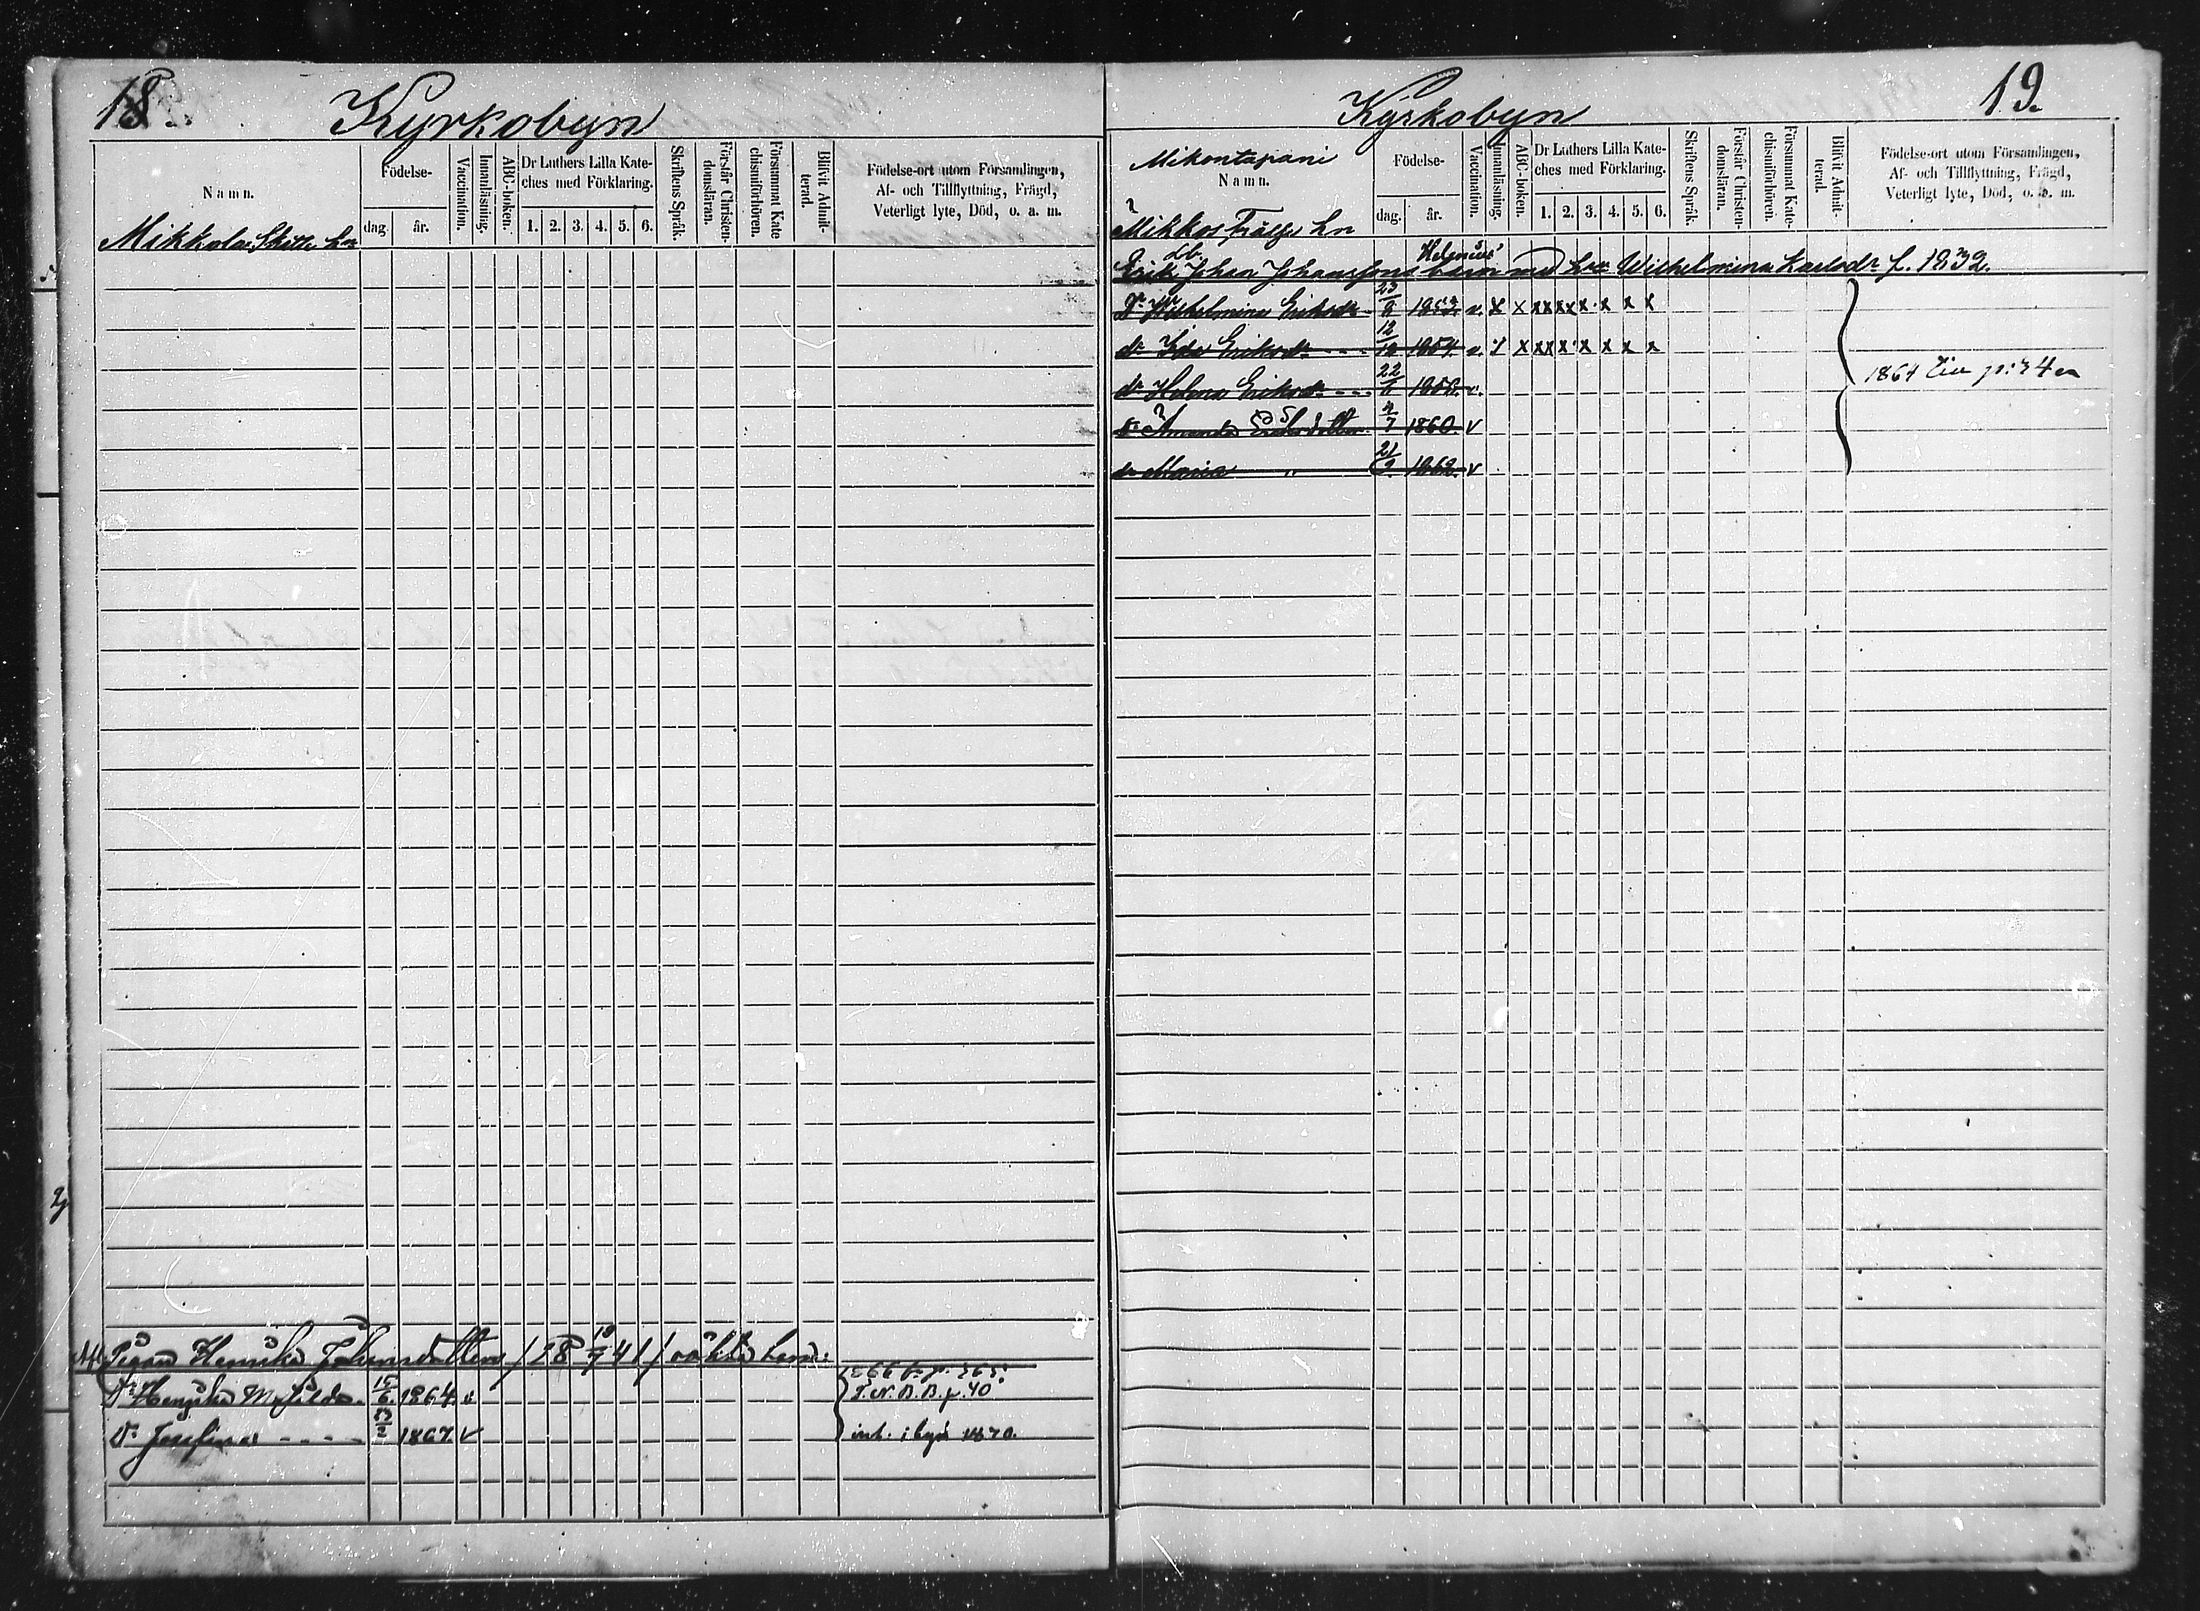 18.
Kyrkobyn
Namn.
Födelse-
dag.
år.
Vaccination.
Innanläsning.
ABC-boken.
Dr Luthers Lilla Kate-
ches med Förklaring.
1. 2. 3. 4. 5. 6.
Skriftens Språk.
Förstår Christen-
domsläran.
Försummat Kate
chismiförhören.
Blifvit Admit-
terad.
Födelse-ort utom Församlingen,
Af- och Tillflyttning, Frägd,
Veterligt lyte, Död, o. a. m.
Mikkola Skatte Ln
Pigan Henrika Johansdotter / 18 10/7 41 / oäkta barn:
1866 fr. p. 365.
Dr Henrika Matilda. 15/6. 1864. v
T. N. B. B. p. 40
Dr Josefina 1867. v
inh. i byn 1870.
19.
Kyrkobyn
Mikontapani
Namn.
Födelse-
dag.
år.
Vaccination.
Innanläsning.
ABC-boken.
Dr Luthers Lilla Kate-
ches med Förklaring.
1. 2. 3. 4. 5. 6.
Skriftens Språk.
Förstår Christen-
domsläran.
Försummat Kate-
chismiförhören.
Blifvit Admit-
terad.
Födelse-ort utom Församlingen,
Af- och Tillflyttning, Frägd,
Veterligt lyte, Död, o. a. m.
Mikkos Frälse Ln
Helenius
Erik Johan Johanssons barn med Wilhelmina Karlsdr f. 1832.
Dr Wilhelmina Eriksdr 23/8 1852. v. x x x x x x x x x
dr Ida Eriksdr 12/10 1854. v. x x x x x x x x x
dr Helena Eriksdr 22/6 1858. v.
1864 p: 34
Dr Amanda Eriksdotter 4/7 1860. v
dr Maria " 21/2 1862. v